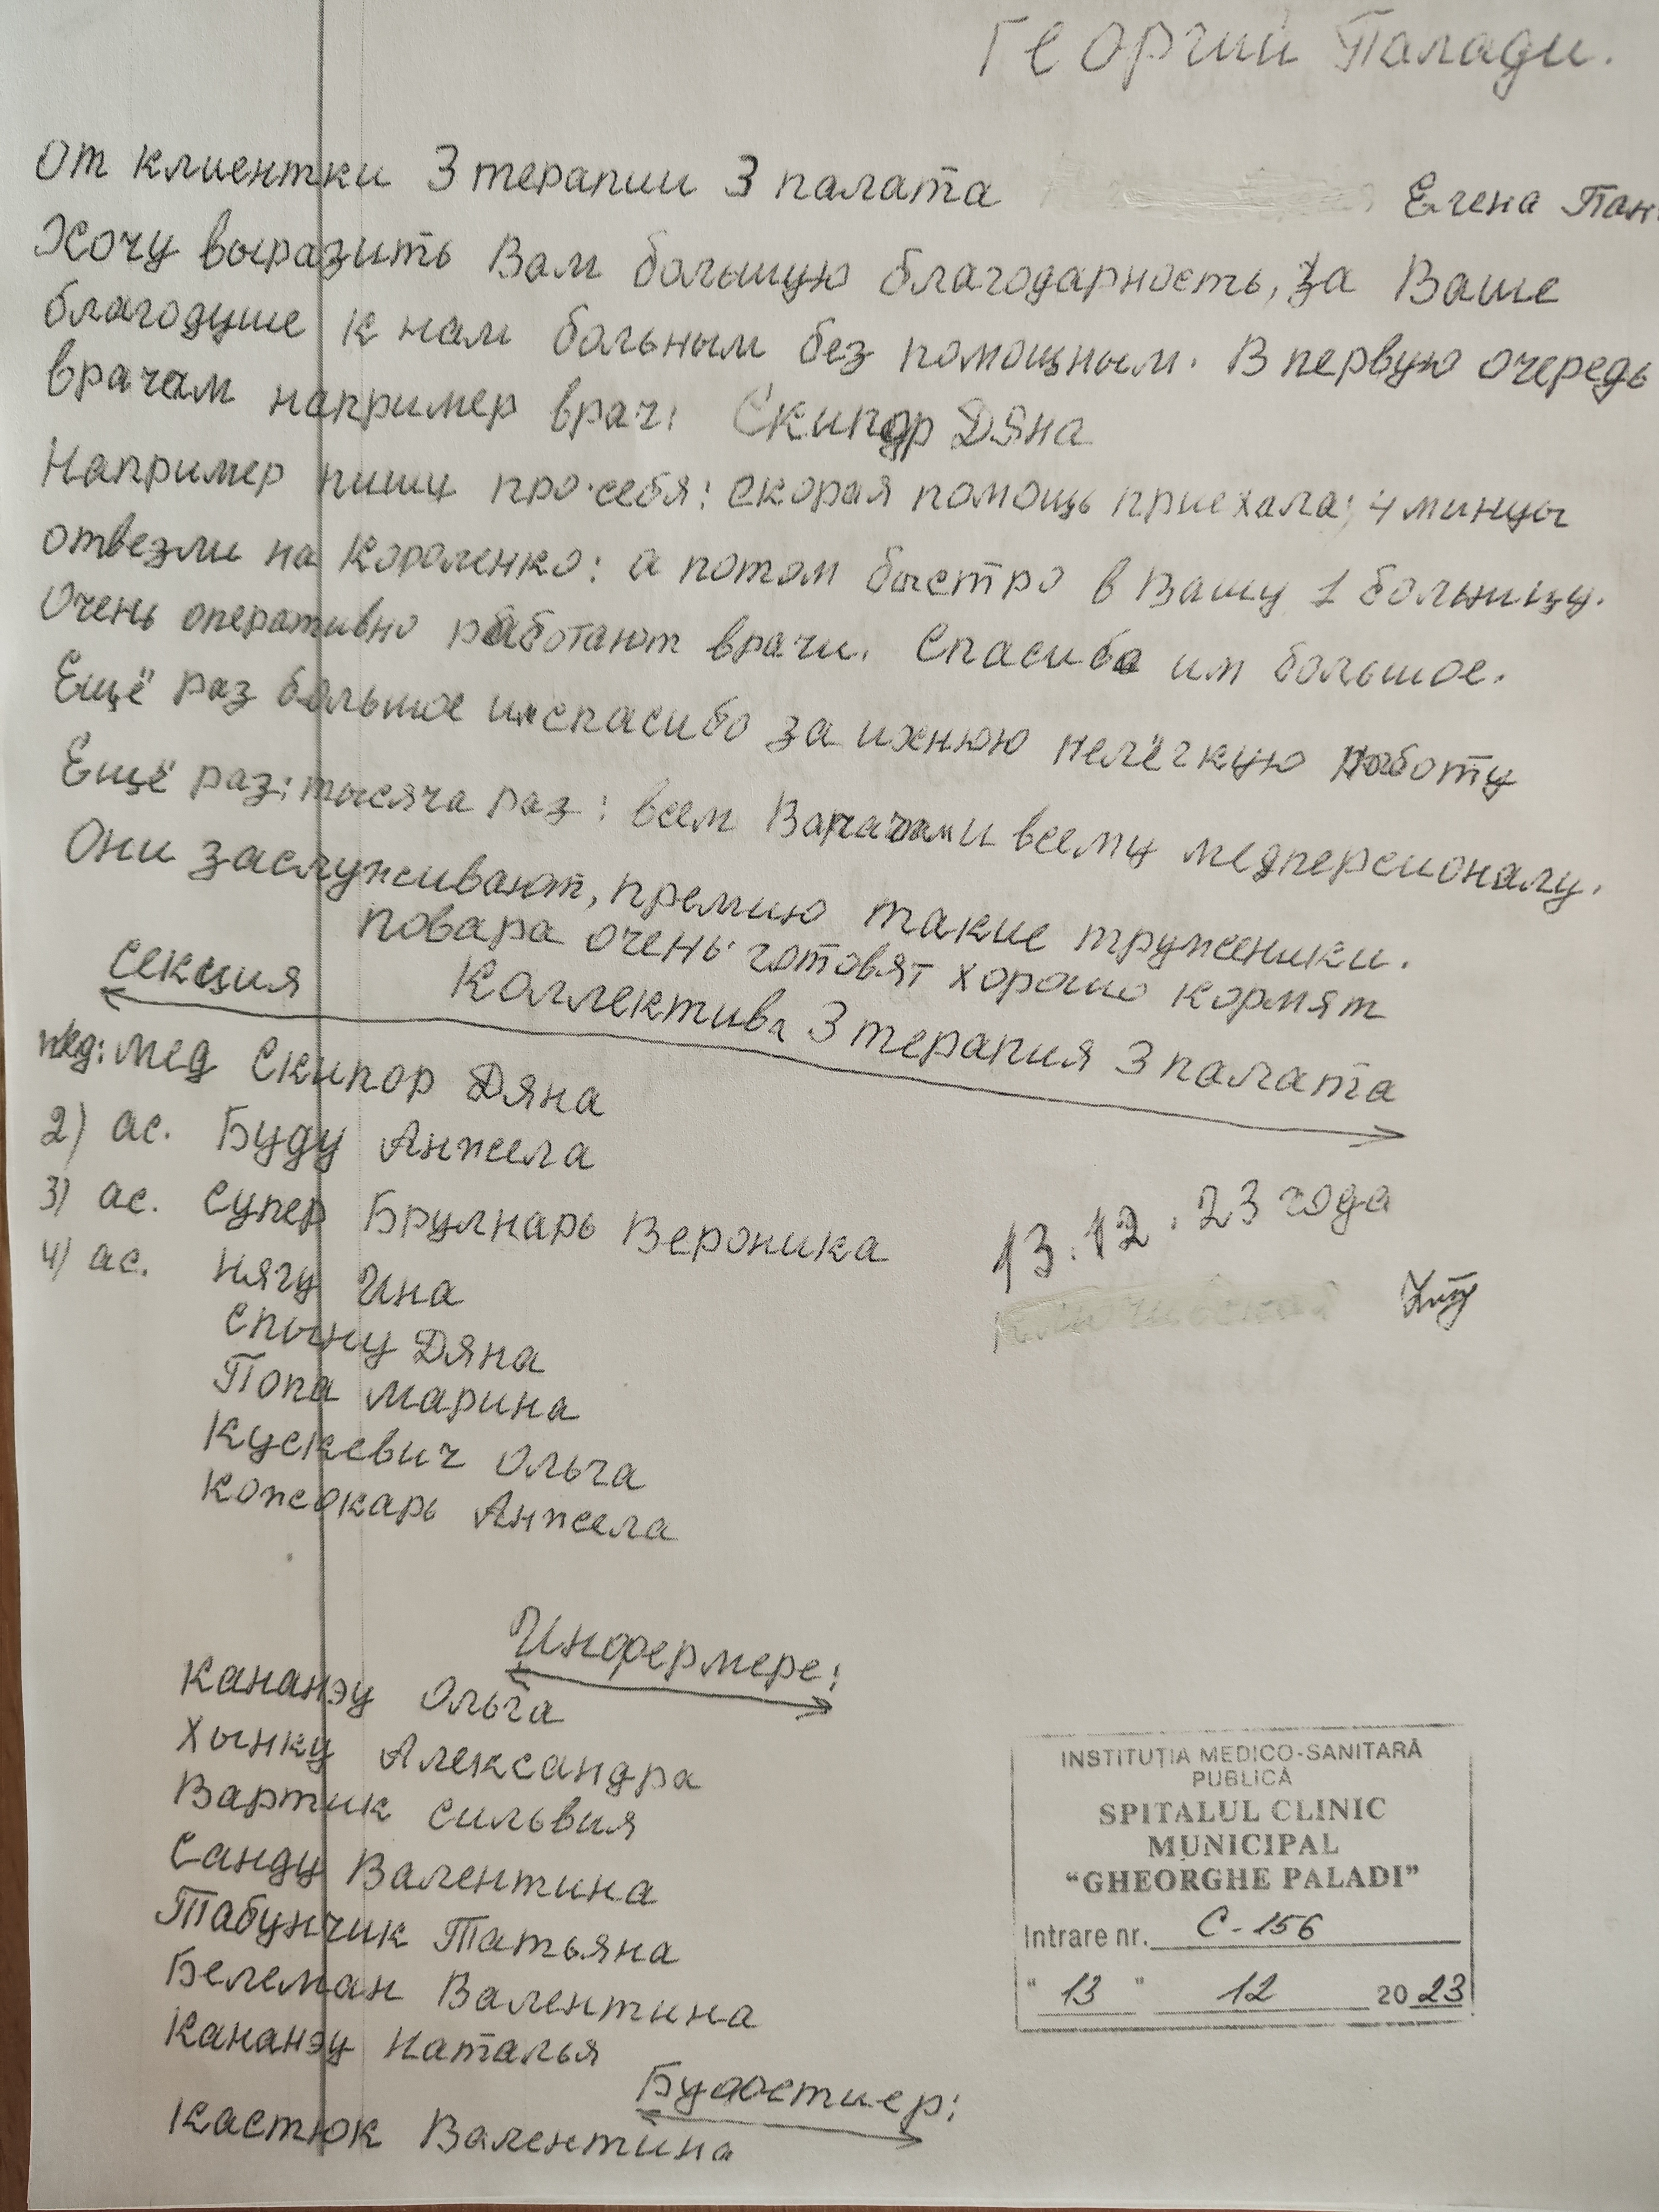 Георгий Палади.
От клиентки 3 терапии 3 палата Елена Пан
Хочу выразить Вам большую благодарность, за Ваше
благодуше к нам больным без помощным. В первую очередь
врачам например врач: Скипор Дяна
Например пишу про себя: скорая помощь приехала; 4 минуы
отвезли на Короленко: а потом быстро в Вашу 1 больницу.
Очень оперативно работают врачи. Спасибо им большое.
Ещё раз большое им спасибо за ихнюю нелёгкую работу
Ещё раз: тысяча раз: всем Врачам и всему медперсионалу.
Они заслуживают, премию такие труженики.
повара очень готовят хорошо кормят
секция Коллектива 3 терапия 3 палата
мед: мед Скипор Дяна
2) ас. Буду Анжела
3) ас. Супер Брулнарь Вероника
4) ас. Нягу Ина
Спыну Дяна
Попа Марина
Кускевич Ольга
Кожокарь Анжела
13.12.23 года
Инфермере:
Кананэу Ольга
Хынку Александра
Вартик Сильвия
Санду Валентина
Табунчик Татьяна
Белеман Валентина
Кананэу Наталья
Буфостиер:
Кастюк Валентина
INSTITUȚIA MEDICO-SANITARĂ
PUBLICĂ
SPITALUL CLINIC
MUNICIPAL
“GHEORGHE PALADI”
Intrare nr. C-156
“ 13 ” 12 2023